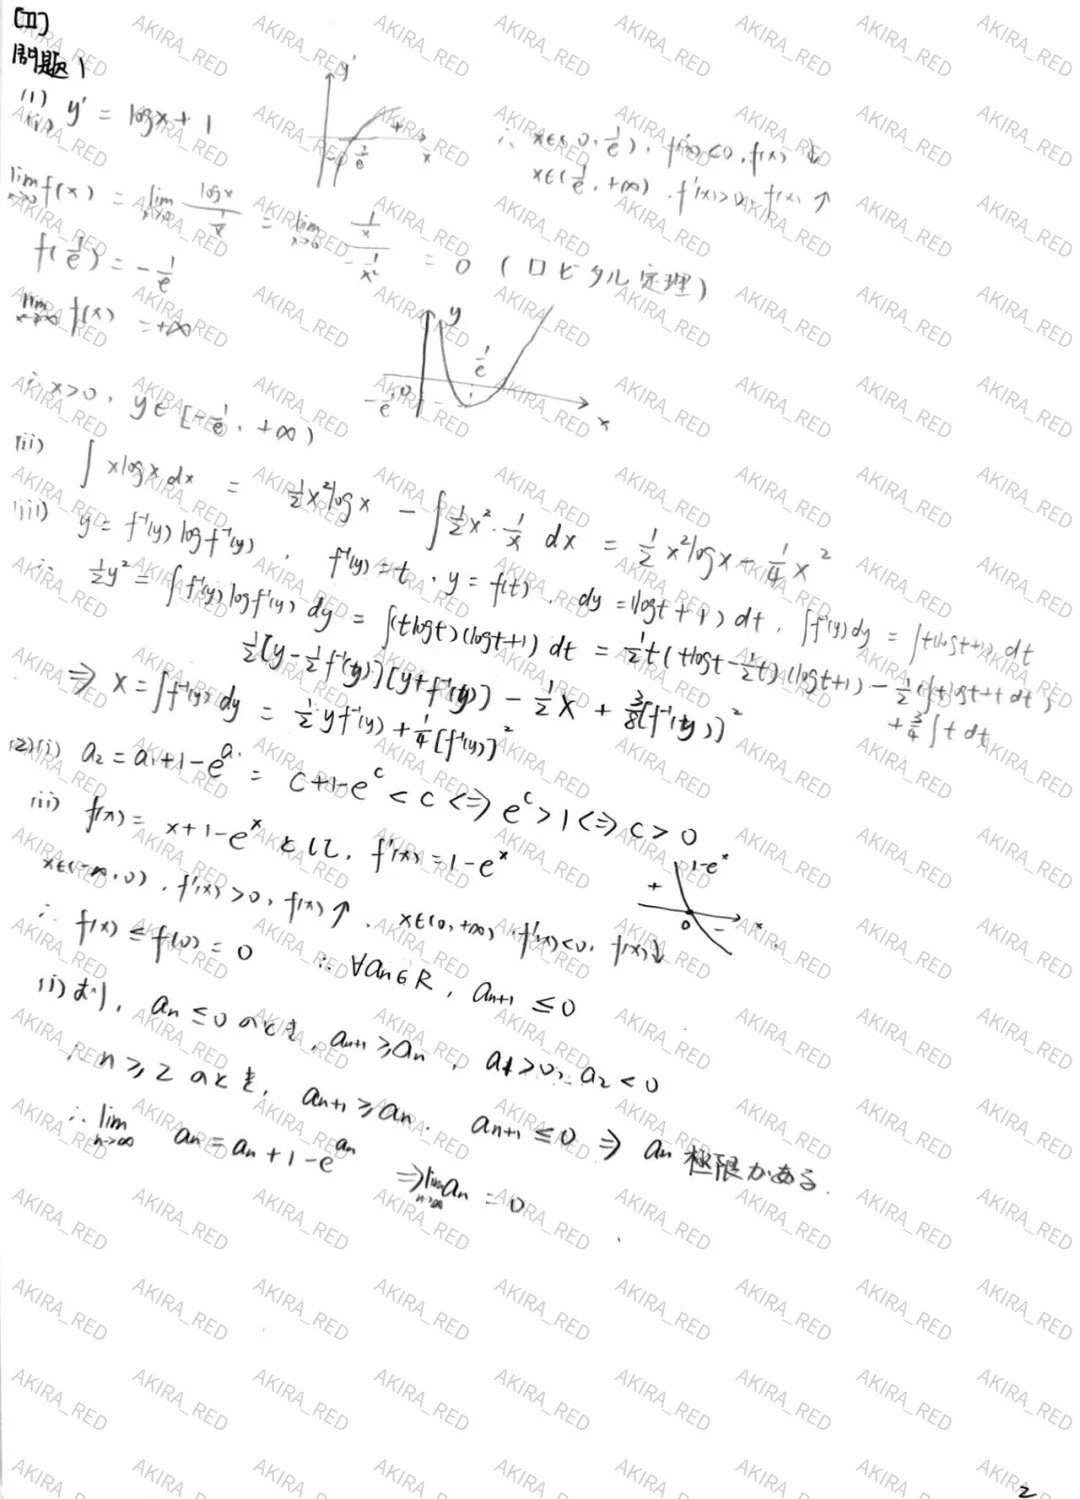 [II]
問題1
(1)
(i) y' = logx + 1
y'
1/e
x
∴ x∈(0, 1/e), f'(x)<0, f(x) ↓
x∈(1/e, +∞), f'(x)>0, f(x) ↑
lim x→0 f(x) = lim x→0 logx / (1/x) = lim x→0 (1/x) / (-1/x²) = 0 (ロピタル定理)
f(1/e) = -1/e
lim x→+∞ f(x) = +∞
y
1/e
0
-1/e
x
∴ x>0, y∈[-1/e, +∞)
(ii) ∫xlogx dx = 1/2 x²logx - ∫1/2 x²·1/x dx = 1/2 x²logx - 1/4 x²
(iii) y = f⁻¹(y) log f⁻¹(y), f⁻¹(y) = t, y = f(t), dy = (logt+1) dt, ∫f⁻¹(y) dy = ∫t(logt+1) dt
∴ 1/2 y² = ∫f⁻¹(y) log f⁻¹(y) dy = ∫(tlogt)(logt+1) dt = 1/2 t(tlogt - 1/2 t)(logt+1) - 1/2 (∫tlogt+t dt) + 3/4 ∫t dt
1/2 [y - 1/2 f⁻¹(y)][y + f⁻¹(y)] - 1/2 X + 3/8 [f⁻¹(y)]²
⇒ X = ∫f⁻¹(y) dy = 1/2 y f⁻¹(y) + 1/4 [f⁻¹(y)]²
(2)(i) a₂ = a₁ + 1 - e^a₁ = c + 1 - e^c < c ⇔ e^c > 1 ⇔ c > 0
(ii) f(x) = x + 1 - e^x として, f'(x) = 1 - e^x
1-e^x
+
0
-
x
x∈(-∞, 0), f'(x)>0, f(x)↑, x∈(0, +∞), f'(x)<0, f(x)↓
∴ f(x) ≤ f(0) = 0 ∴ ∀an∈R, an+1 ≤ 0
(i)より, an ≤ 0 のとき, an+1 ≥ an, a1 > 0, a2 < 0
∴ n ≥ 2 のとき, an+1 ≥ an. an+1 ≤ 0 ⇒ an 極限がある.
∴ lim n→∞ an = an + 1 - e^an ⇒ lim n→∞ an = 0
2
AKIRA_RED